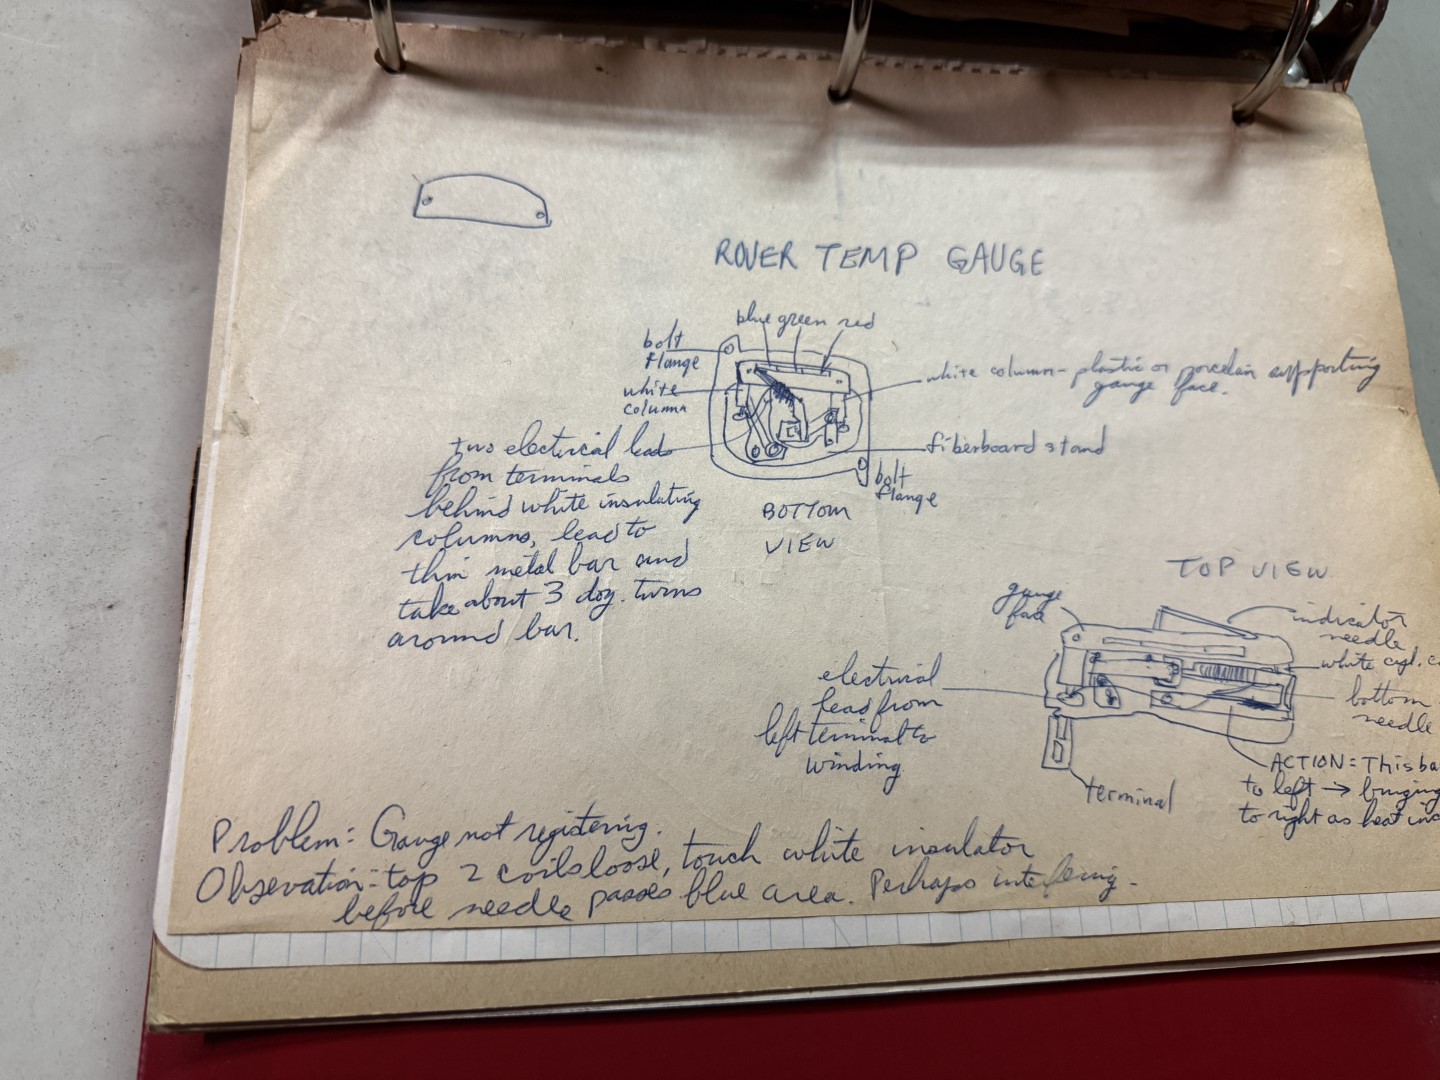 ROVER TEMP GAUGE
blue green red
bolt
flange
white
column
white column - plastic or porcelain supporting
gauge face.
two electrical leads
from terminals
behind white insulating
columns, lead to
thin metal bar and
take about 3 doz. turns
around bar.
fiberboard stand
bolt
flange
BOTTOM
VIEW
TOP VIEW
gauge
face
indicator
needle
white cyl.
bottom
needle
electrical
lead from
left terminal to
winding
terminal
ACTION = This
to left → bringing
to right as heat
Problem: Gauge not registering.
Obsevation: top 2 coils loose, touch white insulator
before needle passes blue area. Perhaps interfering.